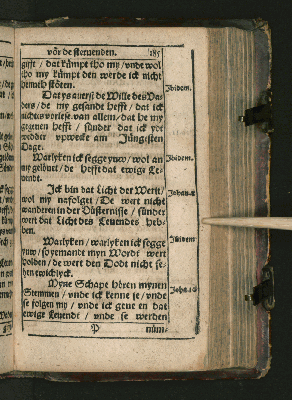 vör de steruenden. 185
gifft / dat kümpt tho my / vnde wol
tho my kümpt den werde ick nicht
henuth stöten.
Dat ys auerst de Wille des Va-
ders / de my gesandt hefft / dat ick
nichtes vorlese van allem / dat he my
gegeuen hefft / sünder dat ick ydt
wedder vpwecke am Jüngesten
Dage.
Warlyken ick segge yuw / wol an
my gelöuet / de hefft dat ewige Le-
uendt.
Ick bin dat Licht der Werlt /
wol my nafolget / De wert nicht
wanderen in der Düsternisse / sünder
wert dat Licht des Leuendes heb-
ben.
Warlyken / warlyken ick segge
yuw / so yemandt myn Wordt wert
holden / de wert den Dodt nicht se-
hen ewichlyck.
Myne Schape hören mynen
Stemmen / vnde ick kenne se / vnde
se folgen my / vnde ick geue en dat
ewige Leuendt / vnde se werden
P nüm-
Ibidem.
Ibidem.
Johan. 8
Ibidem
Joha. 10